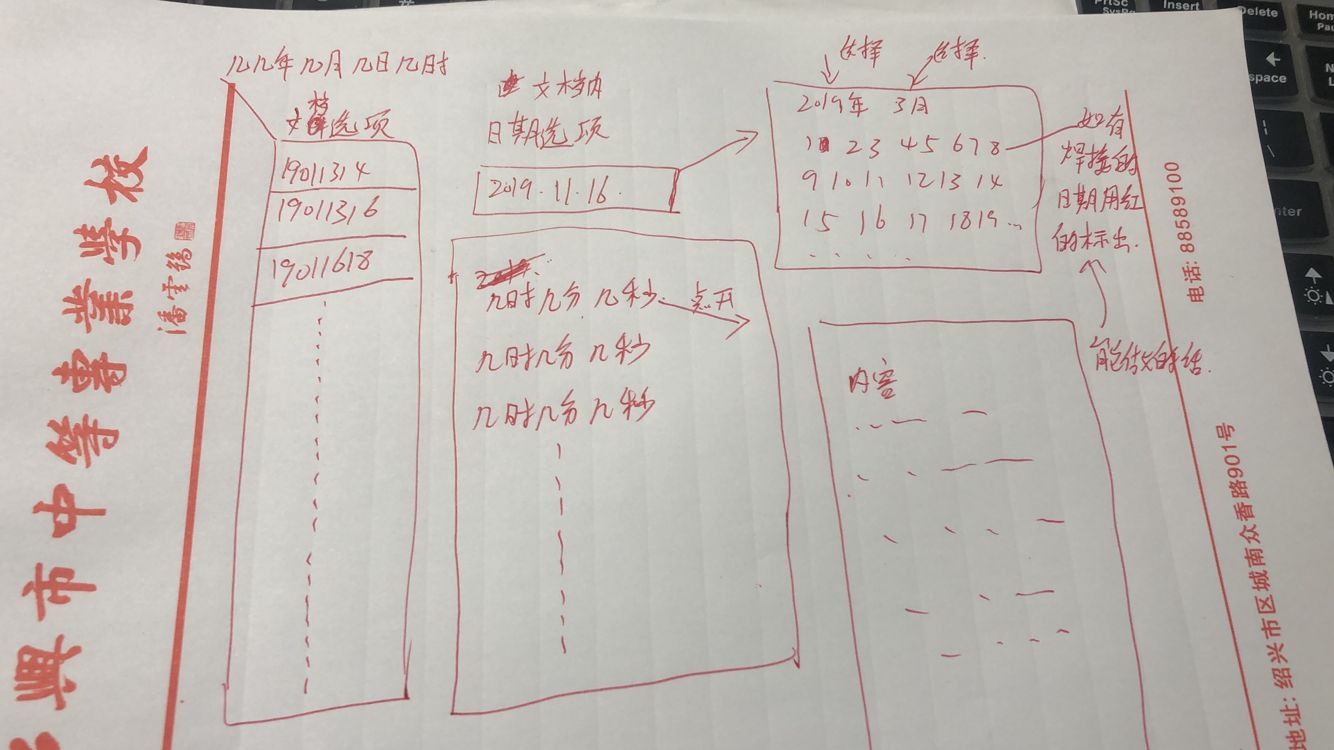 几几年几月几日几时
文档选项
19011314
19011316
19011618
文档内
日期选项
2019.11.16.
几时几分几秒.
点开
几时几分几秒
几时几分几秒
选择
选择.
2019年 3月
1 2 3 4 5 6 7 8
9 10 11 12 13 14
15 16 17 18 19 ...
如有
焊接的
日期用红
的标出.
内容
绍興市中等專業學校
潘雲鶴
电话: 88589100
地址: 绍兴市区城南众香路901号
PrtSc
SysRq
Insert
Delete